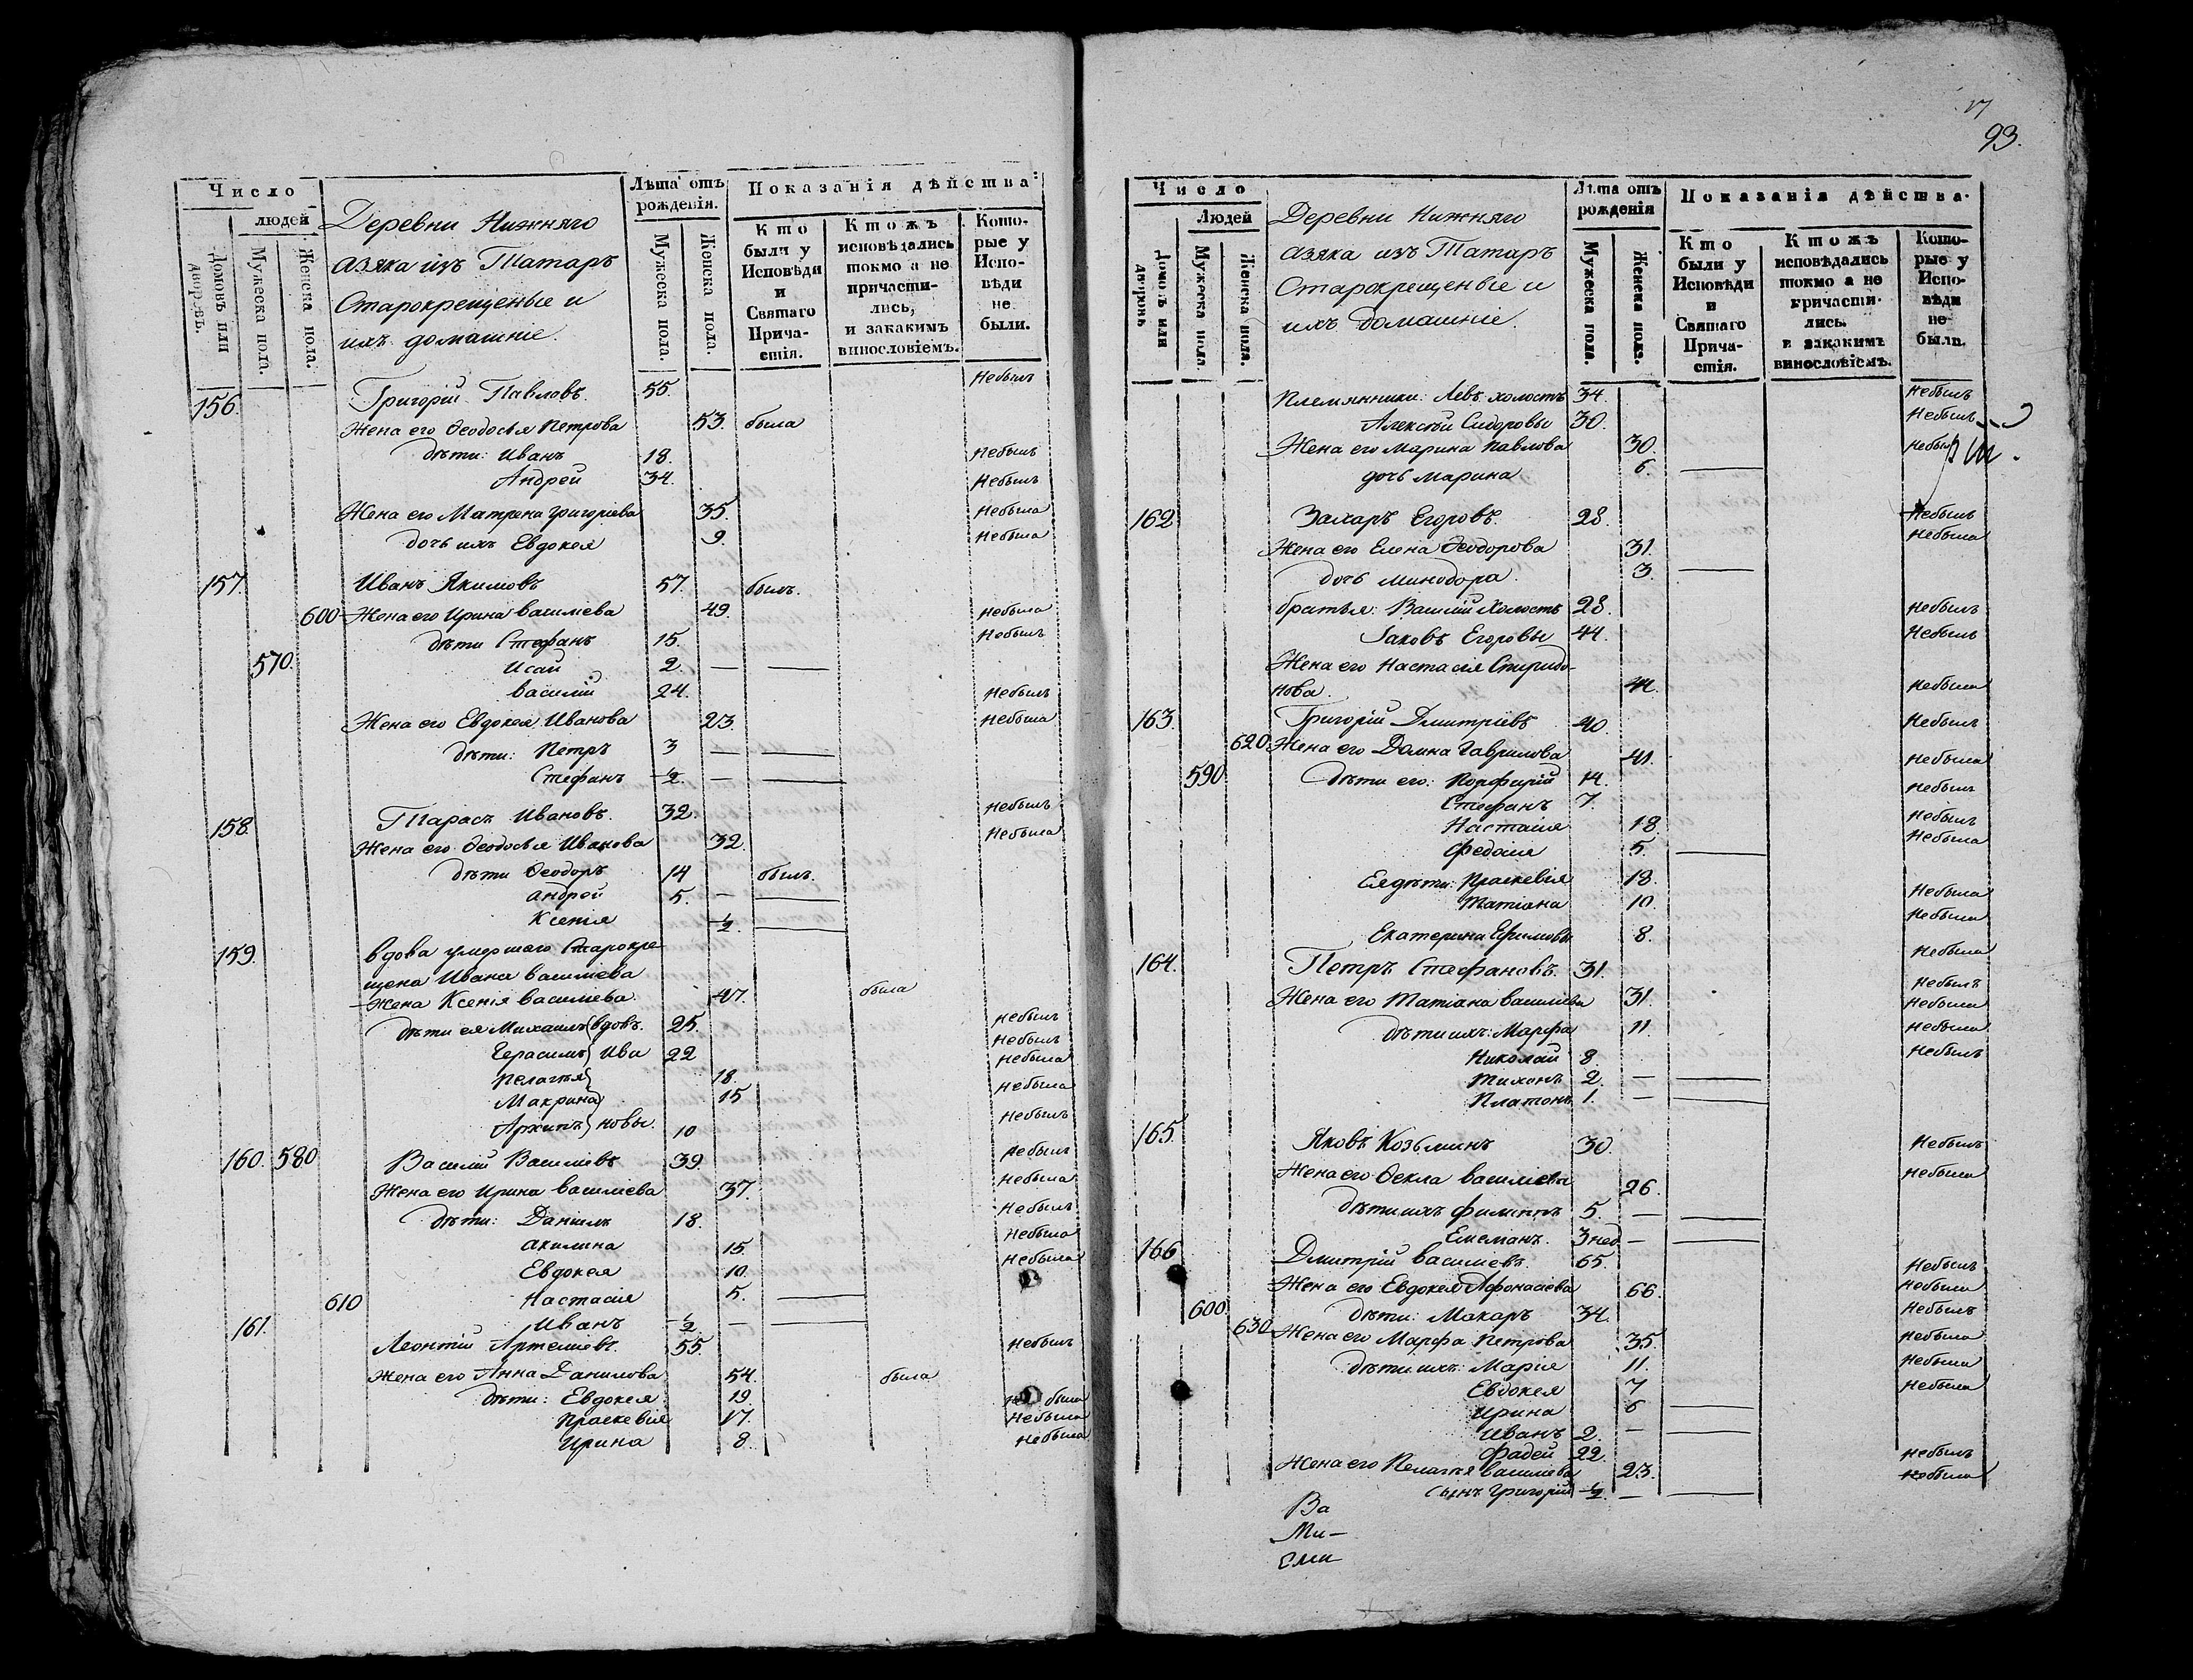 Число
людей
Домовъ или дворовъ.
Мужеска пола.
Женска пола.
Деревни Нижняго
азяка изъ Татаръ
Старокрещеные и
ихъ домашніе.
Лѣта отъ рожденія.
Мужеска пола.
Женска пола.
Показанія дѣйства:
Кто были у Исповѣди и Святаго Прича-стія.
Ктожъ исповѣдались токмо а не причасти-лись, и закакимъ винословіемъ.
Кото-рые у Испо-вѣди не были.
156. Григорій Павловъ. 55. небылъ
Жена его Ѳеодосья Петрова 53. была
дѣти: Иванъ 18. небылъ
Андрей 34. небылъ
Жена его Матрена Григорьева 35. небыла
дочь ихъ Евдокея 9. небыла
157. Иванъ Якимовъ 57. былъ.
600 Жена его Ирина Василиева 49. небыла
дѣти Стефанъ 15. небылъ
570. Исай 2. — —
Василій 24. небылъ
Жена его Евдокея Иванова 23. небыла
дѣти: Петръ 3 — —
Стефанъ ½ — —
158. Тарасъ Ивановъ. 32. небылъ
Жена его Ѳеодосья Иванова 32. небыла
дѣти Ѳеодоръ 14 былъ.
андрей 5. — —
Ксенія ½ —
159. вдова умершего Старокре
щена Ивана Василиева
Жена Ксенія Василиева. 47. была
дѣти ея Михаилъ вдовъ. 25. небылъ
Герасимъ Ива 22 небылъ
Пелагья 18. небыла
Макрина 15 небыла
Архипъ новы. 10 небылъ
160. 580 Василій Василиевъ 39. небылъ
Жена его Ирина Василиева 37. небыла
дѣти: Даніилъ 18. небылъ
акилина 15. небыла
Евдокея 10. небыла
610 Настасія 5. —
Иванъ ½ — —
161. Леонтій Артемиевъ. 55. небылъ
Жена его Анна Данилова 54. была
дѣти: Евдокея 19 не была
Праскевія 17. небыла
Ирина 8. небыла
17
93.
Число
Людей
Домовъ или дворовъ
Мужеска пола
Женска пола.
Деревни Нижняго
азяка изъ Татаръ
Старокрещеные и
ихъ домашніе.
Лѣта отъ рожденія
Мужеска пола.
Женска пола.
Показанія дѣйства.
Кто были у Исповѣди и Святаго Прича-стія.
Ктожъ исповѣдались токмо а не причасти-лись. и закакимъ винословіемъ.
Кото-рые у Испо-вѣди не были.
Племянники: Левъ холостъ 34. небылъ
Алексѣй Сидоровы 30. небылъ
Жена его Марина Павлова 30.
дочь Марина 6. —
162 Захаръ Егоровъ. 28. небылъ
Жена его Елена Ѳеодорова 31. небыла
дочь минодора. 3. —
братья: Василій холостъ 28. небылъ
Іаковъ Егоровы 44. небылъ
Жена его Настасія Спиридо-
нова. небыла
163. Григорій Дмитріевъ 40. небылъ
620 Жена его Домна Гаврилова 41. небыла
590 дѣти его: Порфирій 14. небылъ
Стефанъ 7. небылъ
Настасія 18. небыла
Федосія 5. —
Ея дѣти: Праскевія 18. небыла
Татіана 10. небыла
Екатерина Ефимовы 8. небыла
164. Петръ Стефановъ. 31. небылъ
Жена его Татіана Василиева 31. небыла
дѣти ихъ: Марфа 11 небыла
Николай 8. небылъ
Тихонъ 2. — —
Платонъ 1. — —
165. Яковъ Козьминъ 30. небылъ
Жена его Ѳекла Василиева 26. небыла
дѣти ихъ филиппъ 5. — —
3 нед — —
166 Дмитрій Василиевъ. 65. небылъ
Жена его Евдокея Афонасиева 66. небыла
600 дѣти: Макаръ 34. небылъ
630 Жена его Марфа Петрова 35. небыла
дѣти ихъ: Марія 11. небыла
Евдокея 7 небыла
Ирина 6 —
Иванъ 2. — —
Фадей 22. небылъ
Жена его Пелагья Василиева 23. небыла
сынъ Григорій ½ — —
Ва
Ми—
сми